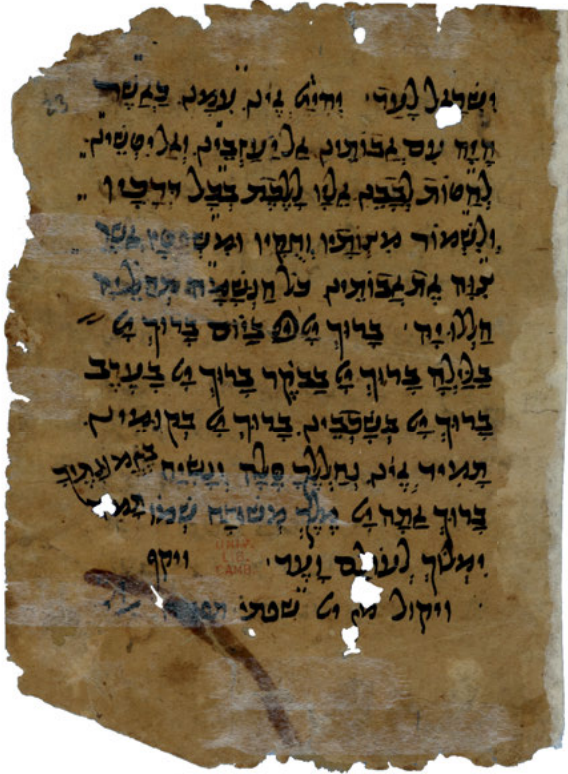 ישראל לעד ויהי יט אינו עמנו כאשר
היה עם אבותינו אל יעזבינו ואל יטשינו
להטות לבבנו אליו ללכת בכל דרכיו
ולשמור מצותיו וחקיו ומשפטיו אשר
צוה את אבותינו כל הנשמה תהלל יה
הללו יה ברוך יט ביום ברוך יט
בלילה ברוך יט בבקר ברוך יט בערב
ברוך יט בשכבינו ברוך יט בקומינו
תמיד אינו נהללך סלה ונשיח באמונתך
ברוך אתה יט מלך משובח שמו תמיד
ימלוך לעולם ועד ויקף
ויקול יט שפתי תפתח